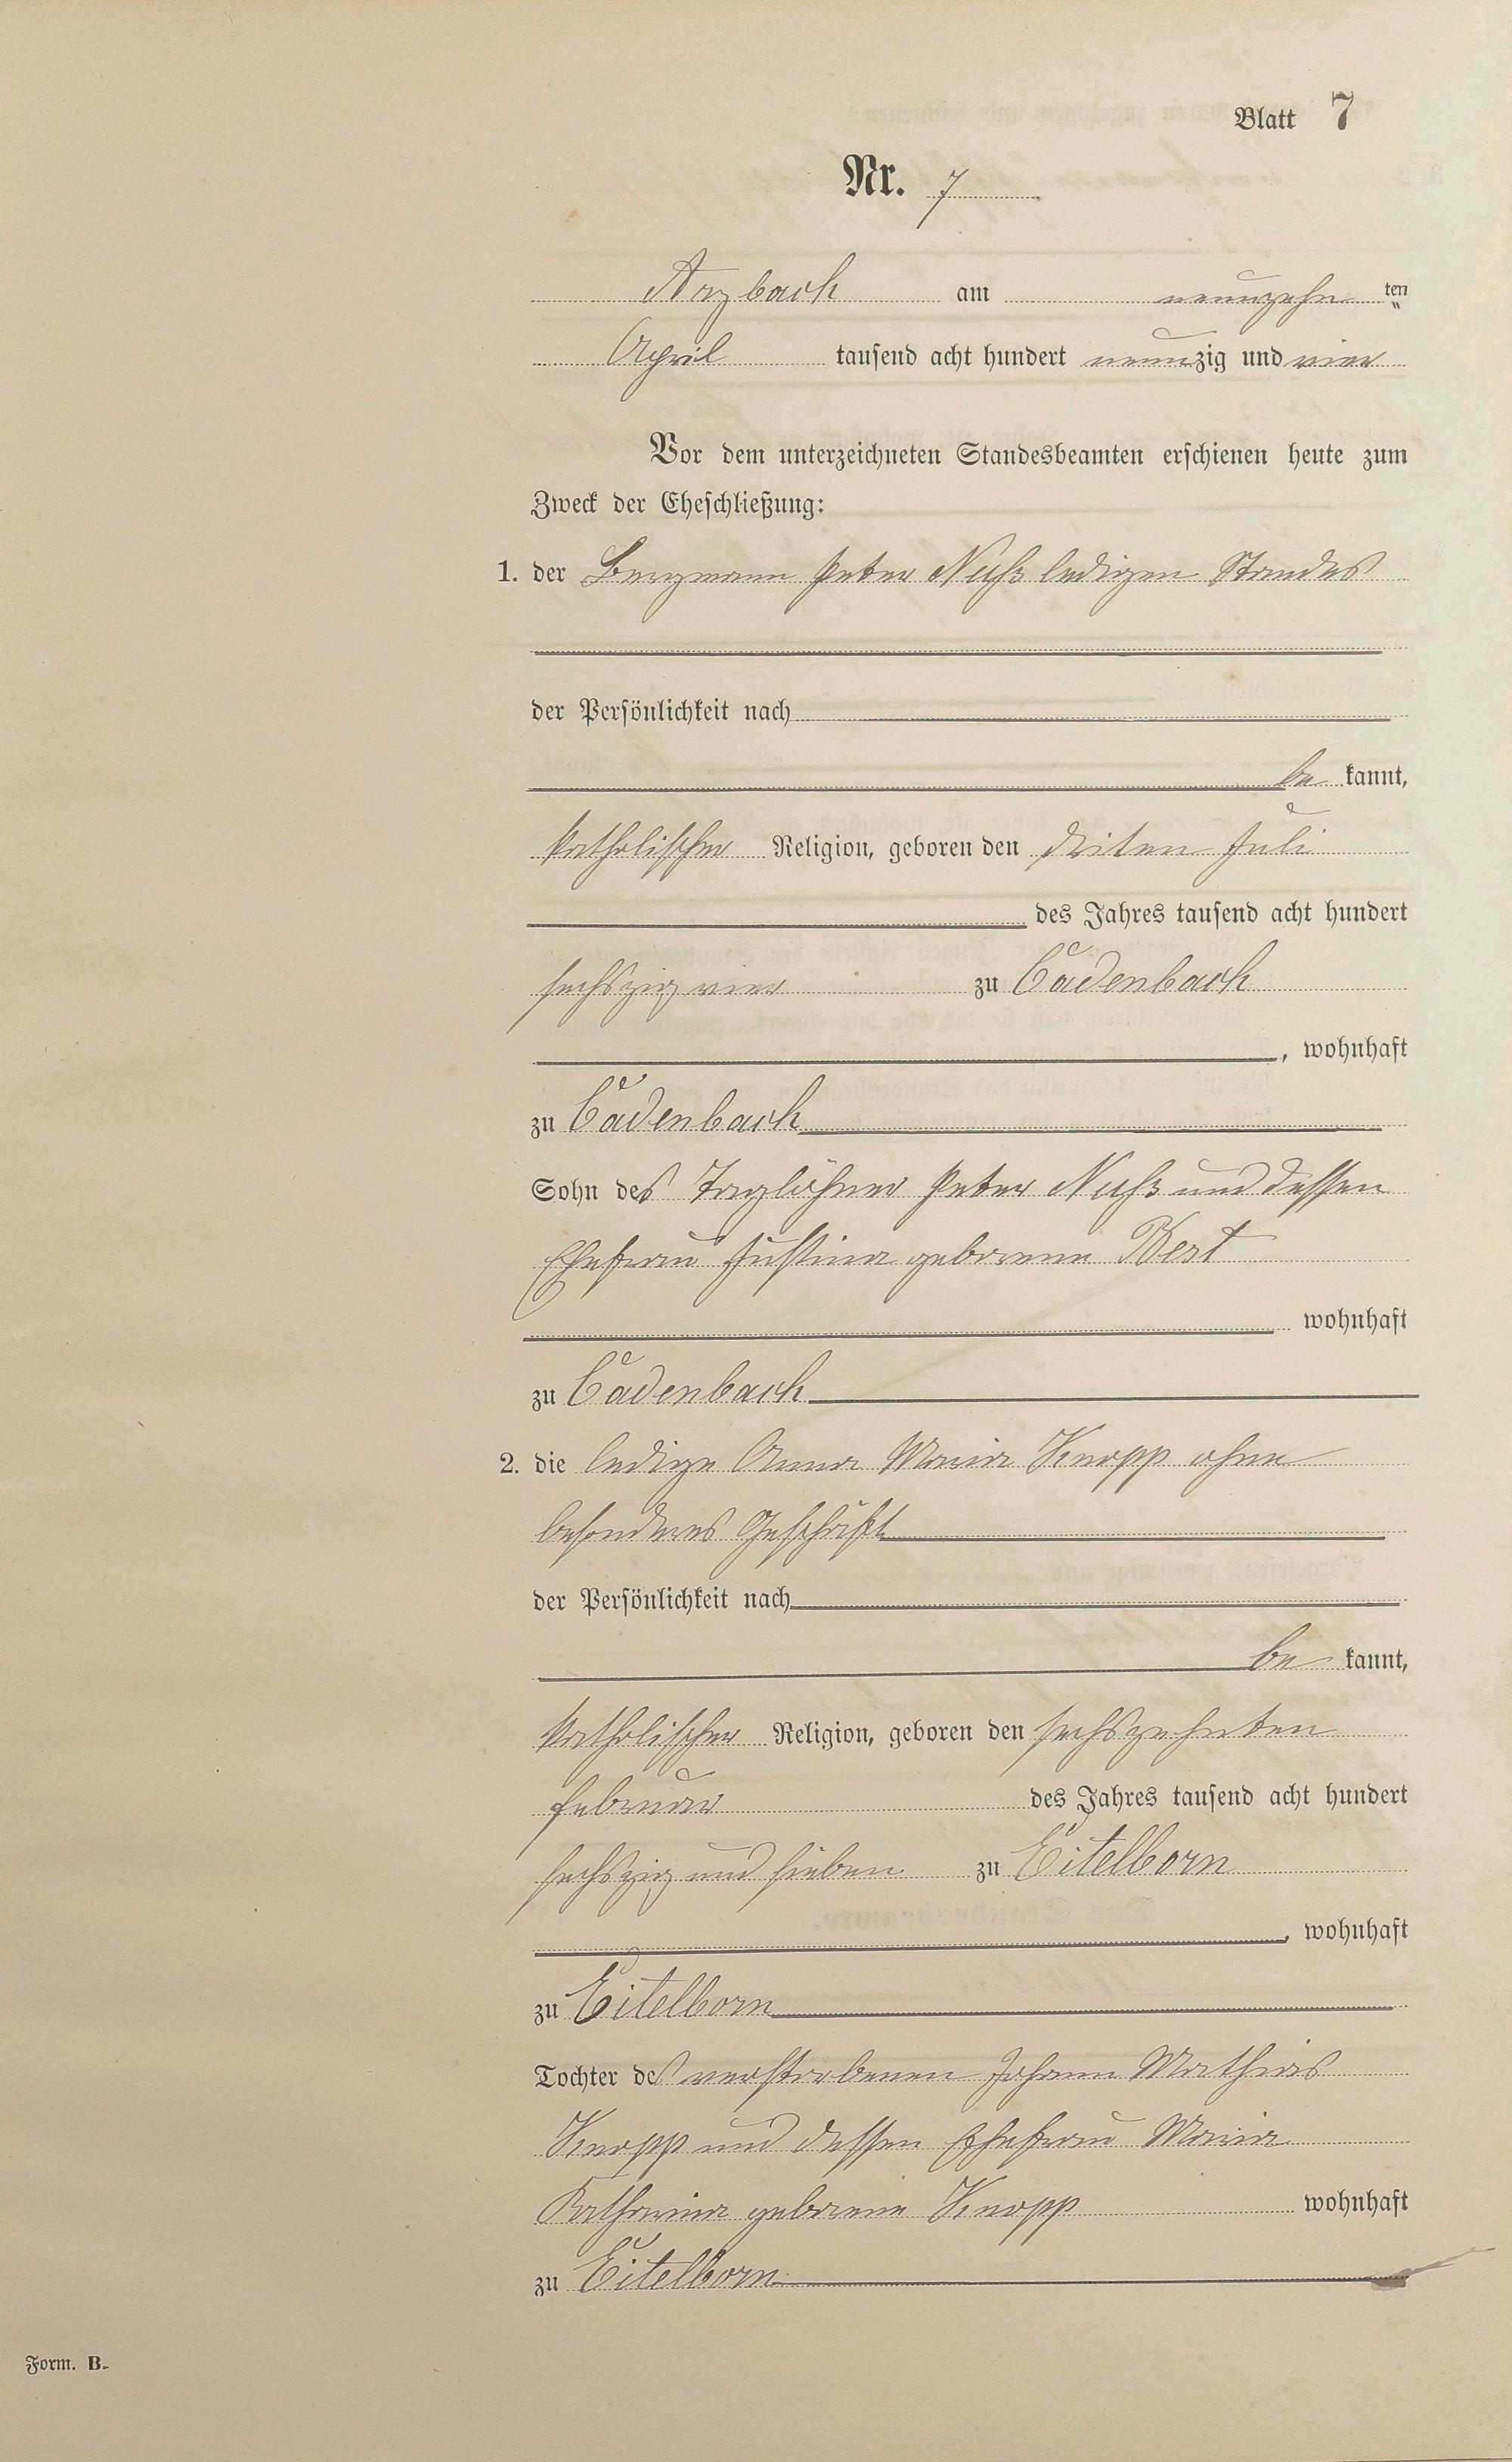 Blatt 7
Nr. 7
Arzbach am neunzehn ten
April tausend acht hundert neunzig und vier
Vor dem unterzeichneten Standesbeamten erschienen heute zum
Zweck der Eheschließung:
1. der Bergmann Peter Nuß ledigen Standes
der Persönlichkeit nach
be kannt,
katholischer Religion, geboren den driten Juli
des Jahres tausend acht hundert
sechszig vier zu Cadenbach
, wohnhaft
zu Cadenbach
Sohn des Taglöhner Peter Nuß und dessen
Ehefrau Justina geborene Bert
wohnhaft
zu Cadenbach
2. die ledige Anna Maria Knopp ohne
besonderes Geschäft
der Persönlichkeit nach
be kannt,
katholischer Religion, geboren den sechszehnten
Februar des Jahres tausend acht hundert
sechszig und sieben zu Eitelborn
, wohnhaft
zu Eitelborn
Tochter des verstorbenen Johann Mathias
Knopp und dessen Ehefrau Maria
Katharina geborene Knopp wohnhaft
zu Eitelborn
Form. B.